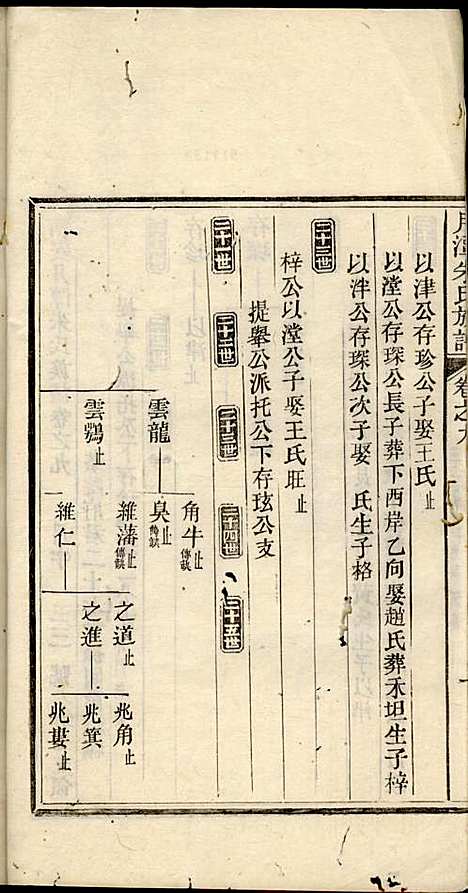 月潭朱氏族譜 卷之九
以津公存珍公子娶王氏止
以瀅公存琛公長子葬下西岸乙向娶趙氏葬禾坦生子梓
以泮公存琛公次子娶 氏生子格
二十三世
梓公以瀅公子娶王氏旺止
提舉公派托公下存玹公支
二十一世 二十二世 二十三世 二十四世 二十五世
角牛止傳缺
雲龍 臭止傳缺
維藩止傳缺 之道止 兆角止
雲鶚止 之進 兆箕
維仁 兆婁止